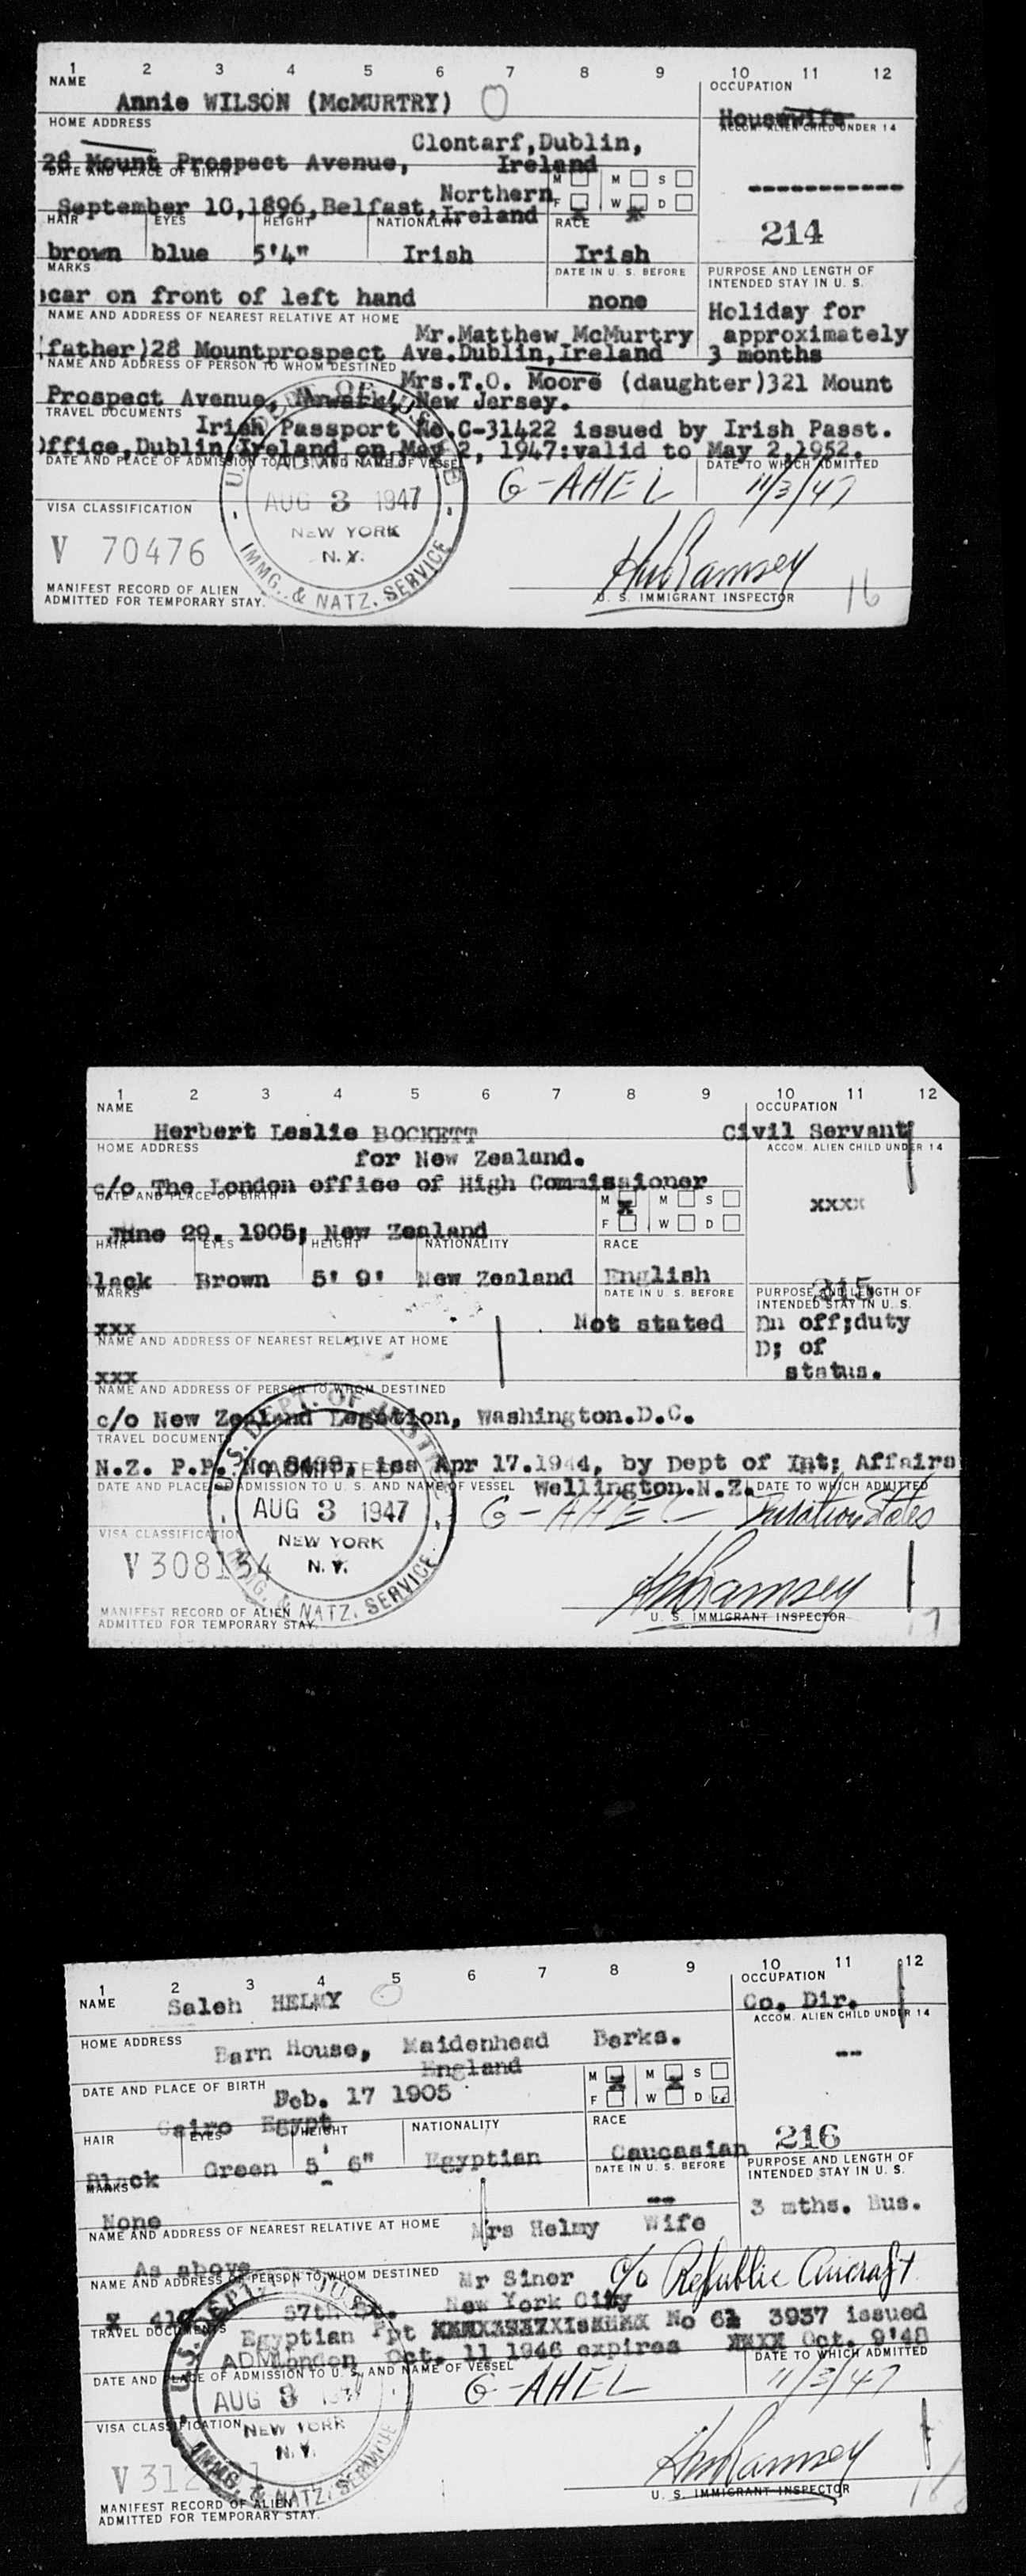 1 2 3 4 5 6 7 8 9 10 11 12
NAME
OCCUPATION
Annie WILSON (McMURTRY)
Housewife
HOME ADDRESS
ACCOM. ALIEN CHILD UNDER 14
Clontarf, Dublin,
28 Mount Prospect Avenue, Ireland
DATE AND PLACE OF BIRTH
M M S
F W D
-----------
Northern
September 10,1896, Belfast, Ireland
HAIR EYES HEIGHT NATIONALITY RACE
214
brown blue 5'4" Irish Irish
MARKS
DATE IN U. S. BEFORE
PURPOSE AND LENGTH OF
INTENDED STAY IN U. S.
scar on front of left hand none
Holiday for
approximately
3 months
NAME AND ADDRESS OF NEAREST RELATIVE AT HOME
Mr. Matthew McMurtry
(father) 28 Mountprospect Ave. Dublin, Ireland
NAME AND ADDRESS OF PERSON TO WHOM DESTINED
Mrs.T.O. Moore (daughter) 321 Mount
Prospect Avenue, Newark, New Jersey.
TRAVEL DOCUMENTS
Irish Passport No.C-31422 issued by Irish Passt.
Office, Dublin, Ireland on May 2, 1947: valid to May 2, 1952.
DATE AND PLACE OF ADMISSION TO U. S. AND NAME OF VESSEL
DATE TO WHICH ADMITTED
G-AHEL 11/3/47
AUG 3 1947
NEW YORK
N. Y.
IMMG. & NATZ. SERVICE
VISA CLASSIFICATION
V 70476
MANIFEST RECORD OF ALIEN
ADMITTED FOR TEMPORARY STAY.
U. S. IMMIGRANT INSPECTOR
16
1 2 3 4 5 6 7 8 9 10 11 12
NAME
OCCUPATION
Herbert Leslie BOCKETT
Civil Servant
HOME ADDRESS
ACCOM. ALIEN CHILD UNDER 14
for New Zealand.
c/o The London office of High Commissioner
DATE AND PLACE OF BIRTH
M M S
F W D
xxxx
June 29. 1905; New Zealand
HAIR EYES HEIGHT NATIONALITY RACE
lack Brown 5' 9' New Zealand English
MARKS
DATE IN U. S. BEFORE
215
PURPOSE AND LENGTH OF
INTENDED STAY IN U. S.
xxx Not stated
On off;duty
D; of
status.
NAME AND ADDRESS OF NEAREST RELATIVE AT HOME
xxx
NAME AND ADDRESS OF PERSON TO WHOM DESTINED
c/o New Zealand Legation, Washington.D.C.
TRAVEL DOCUMENTS
N.Z. P.P. No iss Apr 17.1944, by Dept of Int; Affairs
Wellington.N.Z.
DATE AND PLACE OF ADMISSION TO U. S. AND NAME OF VESSEL
DATE TO WHICH ADMITTED
G-AHEL Duration States
U. S. DEPT. OF JUSTICE
ADMITTED
AUG 3 1947
NEW YORK
N. Y.
IMMG. & NATZ. SERVICE
VISA CLASSIFICATION
V 308154
MANIFEST RECORD OF ALIEN
ADMITTED FOR TEMPORARY STAY.
U. S. IMMIGRANT INSPECTOR
17
1 2 3 4 5 6 7 8 9 10 11 12
NAME
OCCUPATION
Saleh HELMY
Co. Dir.
HOME ADDRESS
ACCOM. ALIEN CHILD UNDER 14
Barn House, Maidenhead Berks.
England
--
DATE AND PLACE OF BIRTH
M M S
F W D
Feb. 17 1905
Cairo Egypt
HAIR EYES HEIGHT NATIONALITY RACE
216
Black Green 5' 6" Egyptian Caucasian
MARKS
DATE IN U. S. BEFORE
PURPOSE AND LENGTH OF
INTENDED STAY IN U. S.
None --
3 mths. Bus.
NAME AND ADDRESS OF NEAREST RELATIVE AT HOME
Mrs Helmy Wife
As above
NAME AND ADDRESS OF PERSON TO WHOM DESTINED
Mr Siner c/o Republic Aircraft
57th St. New York City
TRAVEL DOCUMENTS
Egyptian Ppt No 3937 issued
London Oct. 11 1946 expires Oct. 9'48
DATE AND PLACE OF ADMISSION TO U. S. AND NAME OF VESSEL
DATE TO WHICH ADMITTED
G-AHEL 11/3/47
AUG 3
NEW YORK
N. Y.
IMMG. & NATZ. SERVICE
VISA CLASSIFICATION
MANIFEST RECORD OF ALIEN
ADMITTED FOR TEMPORARY STAY.
U. S. IMMIGRANT INSPECTOR